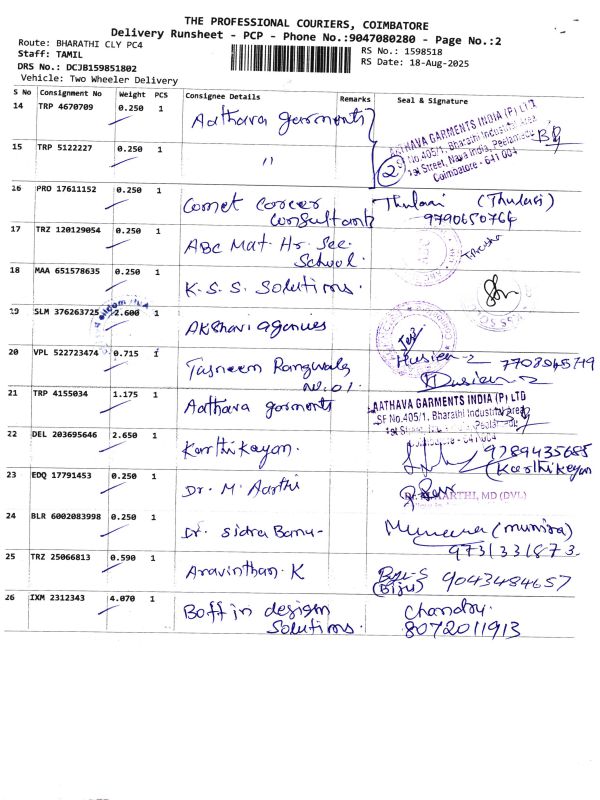 THE PROFESSIONAL COURIERS, COIMBATORE
Delivery Runsheet - PCP - Phone No.:9047080280 - Page No.:2
Route: BHARATHI CLY PC4
Staff: TAMIL
RS No.: 1598518
DRS No.: DCJB159851802
RS Date: 18-Aug-2025
Vehicle: Two Wheeler Delivery
S No Consignment No Weight PCS Consignee Details Remarks Seal & Signature
14 TRP 4670709 0.250 1 Aathava garments
AATHAVA GARMENTS INDIA (P) LTD
SF No.405/1, Bharathi Industrial Area
1st Street, Nava India, Peelamedu
Coimbatore - 641 004
15 TRP 5122227 0.250 1 " 2
16 PRO 17611152 0.250 1 Comet Career Consultant Thulasi (Thulasi)
9790650764
17 TRZ 120129054 0.250 1 ABC Mat. Hr. Sec.
School.
18 MAA 651578635 0.250 1 K.S.S. Solutions.
19 SLM 376263725 2.600 1 Akshavi agencies
20 VPL 522723474 0.715 1 Tasneem Rangwala
No.01. Husien
21 TRP 4155034 1.175 1 Aathava garments
AATHAVA GARMENTS INDIA (P) LTD
SF No.405/1, Bharathi Industrial Area
Coimbatore - 641 004
22 DEL 203695646 2.650 1 Karthikayan. 9789435685
(Karthikayan
23 EDQ 17791453 0.250 1 Dr. M. Aarthi
MD (DVL)
24 BLR 6002083998 0.250 1 Dr. Sidra Banu- Muneera (munira)
9731331873
25 TRZ 25066813 0.590 1 Aravinthan. K 9043484657
(Biju)
26 IXM 2312343 4.070 1 Boffin design
Solutions. Chandru.
8072011913